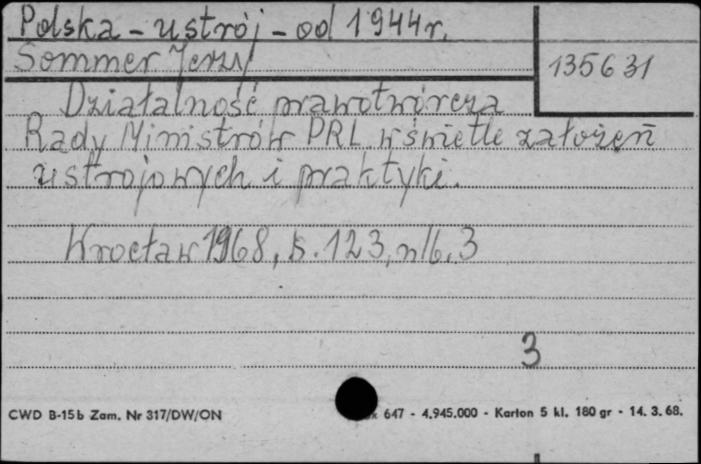 Polska - ustrój - od 1944 r.
Sommer Jerzy
135631
Działalność prawotwórcza
Rady Ministrów PRL w świetle założeń
ustrojowych i praktyki.
Wrocław 1968, s. 123, nlb. 3
3
CWD B-15b Zam. Nr 317/DW/ON
647 - 4.945.000 - Karton 5 kl. 180 gr - 14. 3. 68.